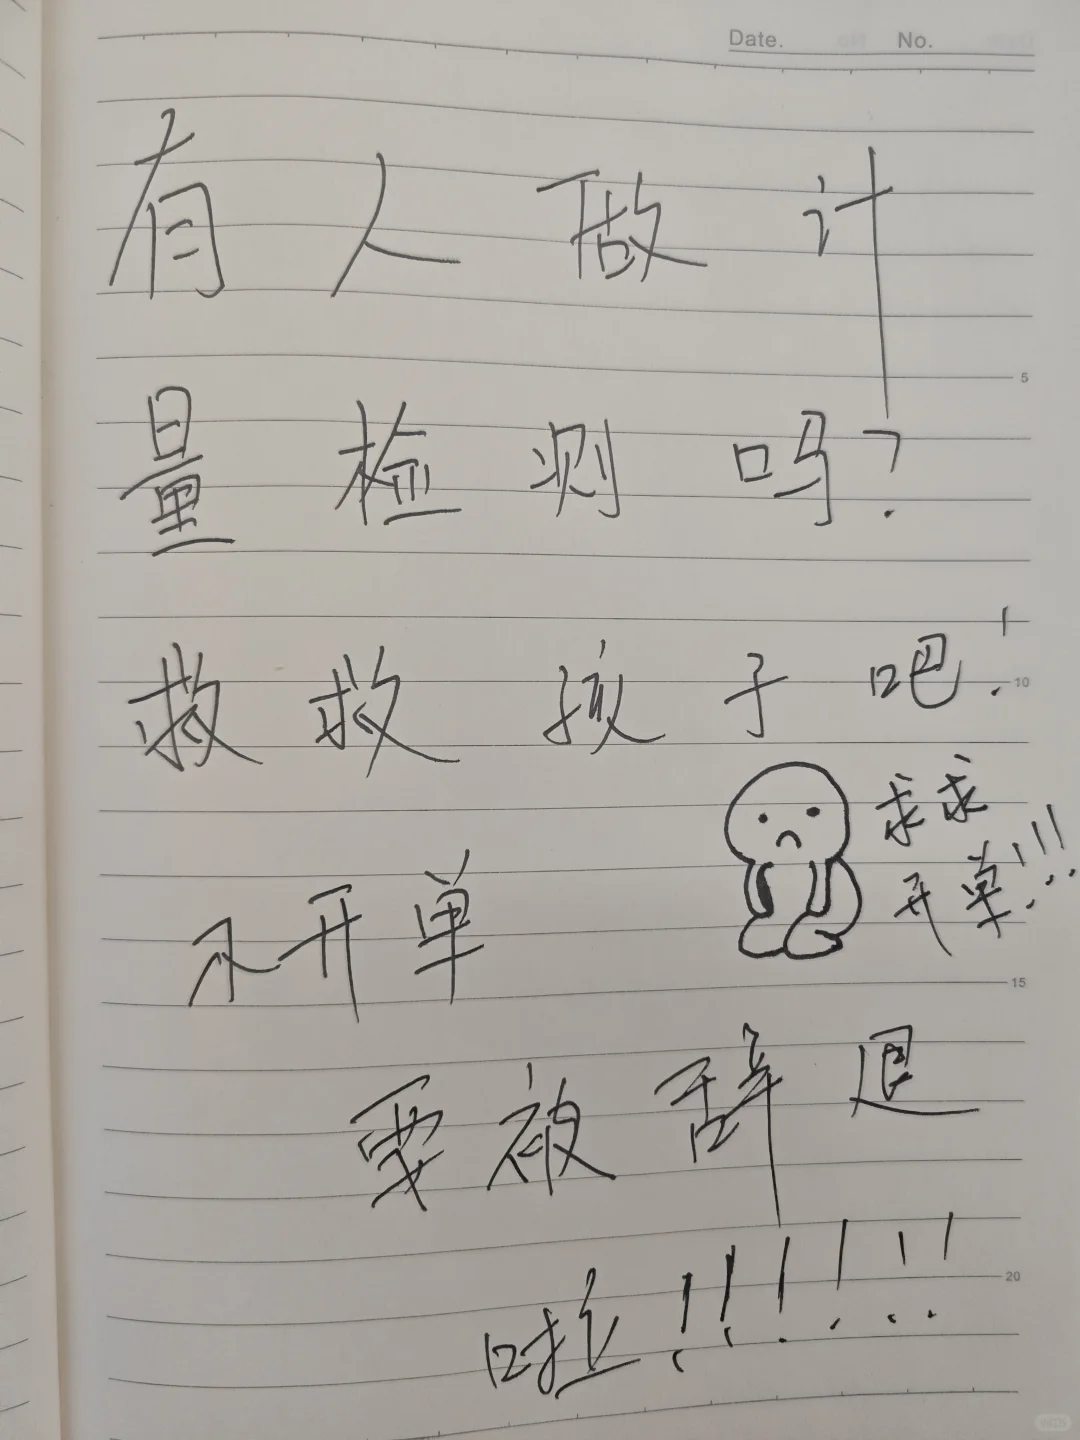 Date. No.
有人做计
量检测吗?
5
救救孩子吧!
10
求求
开单!!!
不开单
15
要被辞退
啦!!!!!!
20